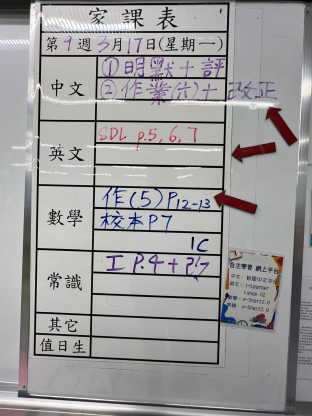 家課表
第9週3月17日(星期一)
中文
①明默+評
②作業(六)+改正
英文
SDL p.5,6,7
數學
作(5)P12-13
校本P7
1C
常識
工 P.4+P.7
其它
值日生
自主學習 網上平台